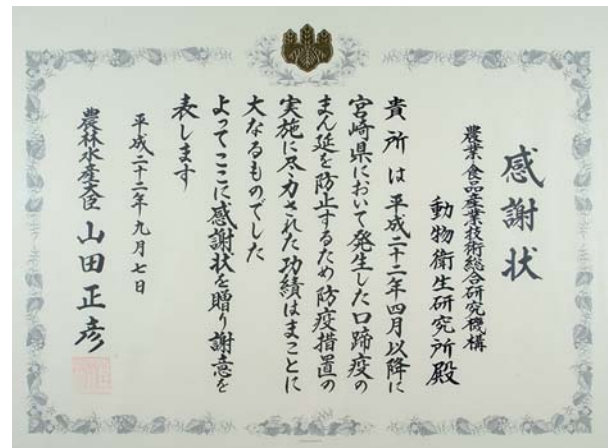 感謝状
農業・食品産業技術総合研究機構
動物衛生研究所殿
貴所は平成二十二年四月以降に
宮崎県において発生した口蹄疫の
まん延を防止するため防疫措置の
実施に尽力された功績はまことに
大なるものでした
よってここに感謝状を贈り謝意を
表します
平成二十二年九月七日
農林水産大臣 山田正彦